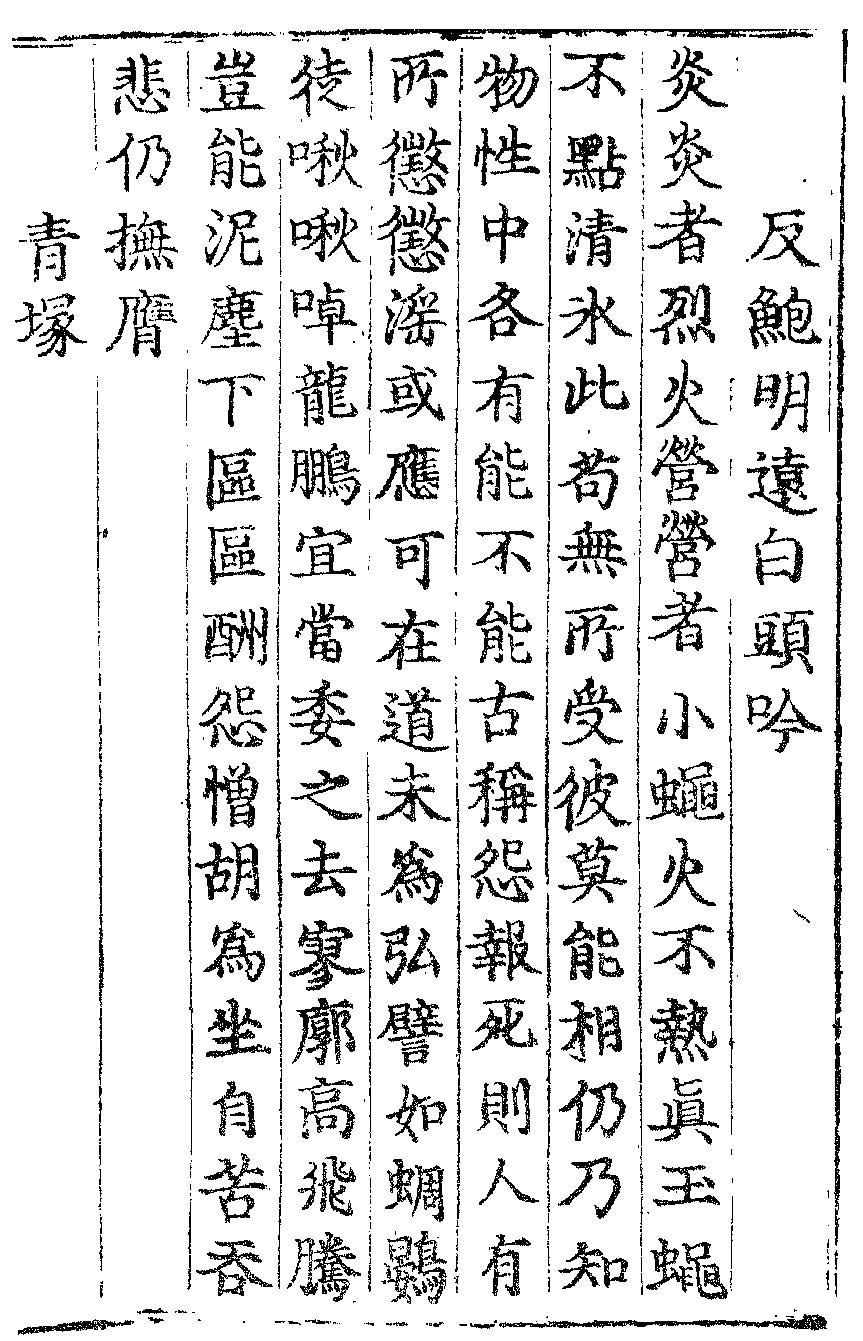 反鮑明遠白頭吟
炎炎者烈火營營者小蠅火不熱眞玉蠅
不點清氷此苟無所受彼莫能相仍乃知
物性中各有能不能古稱怨報死則人有
所懲懲滛或應可在道未爲弘譬如蜩鷃
徒啾啾啅龍鵬宜當委之去寥廓高飛騰
豈能泥塵下區區酬怨憎胡爲坐自苦吞
悲仍撫膺
青塚